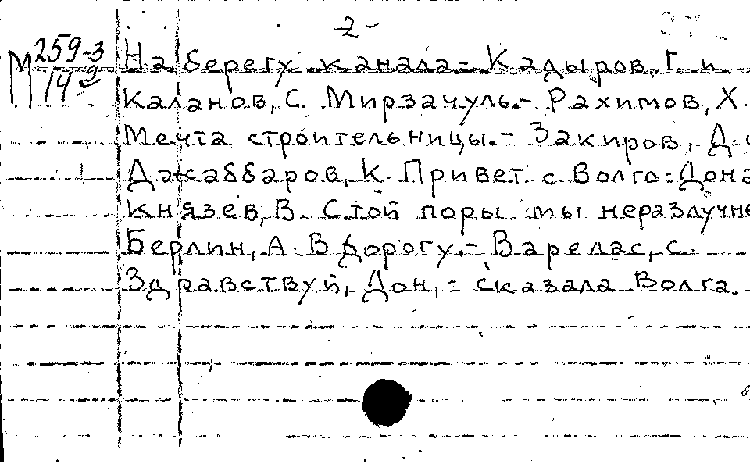 -2-
М 259-3
149
На берегу канала.- Кадыров, Г. и
Каланов, С. Мирзачуль.- Рахимов, Х.
Мечта строительницы.- Закиров, Д.
Джаббаров, К. Привет с Волго-Дона
Князев, В. С той поры мы неразлучн
Берлин, А. В дорогу.- Варелас, С.
Здравствуй, Дон,- сказала Волга.